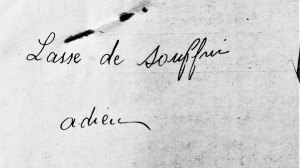 Lasse de souffrir
adieu